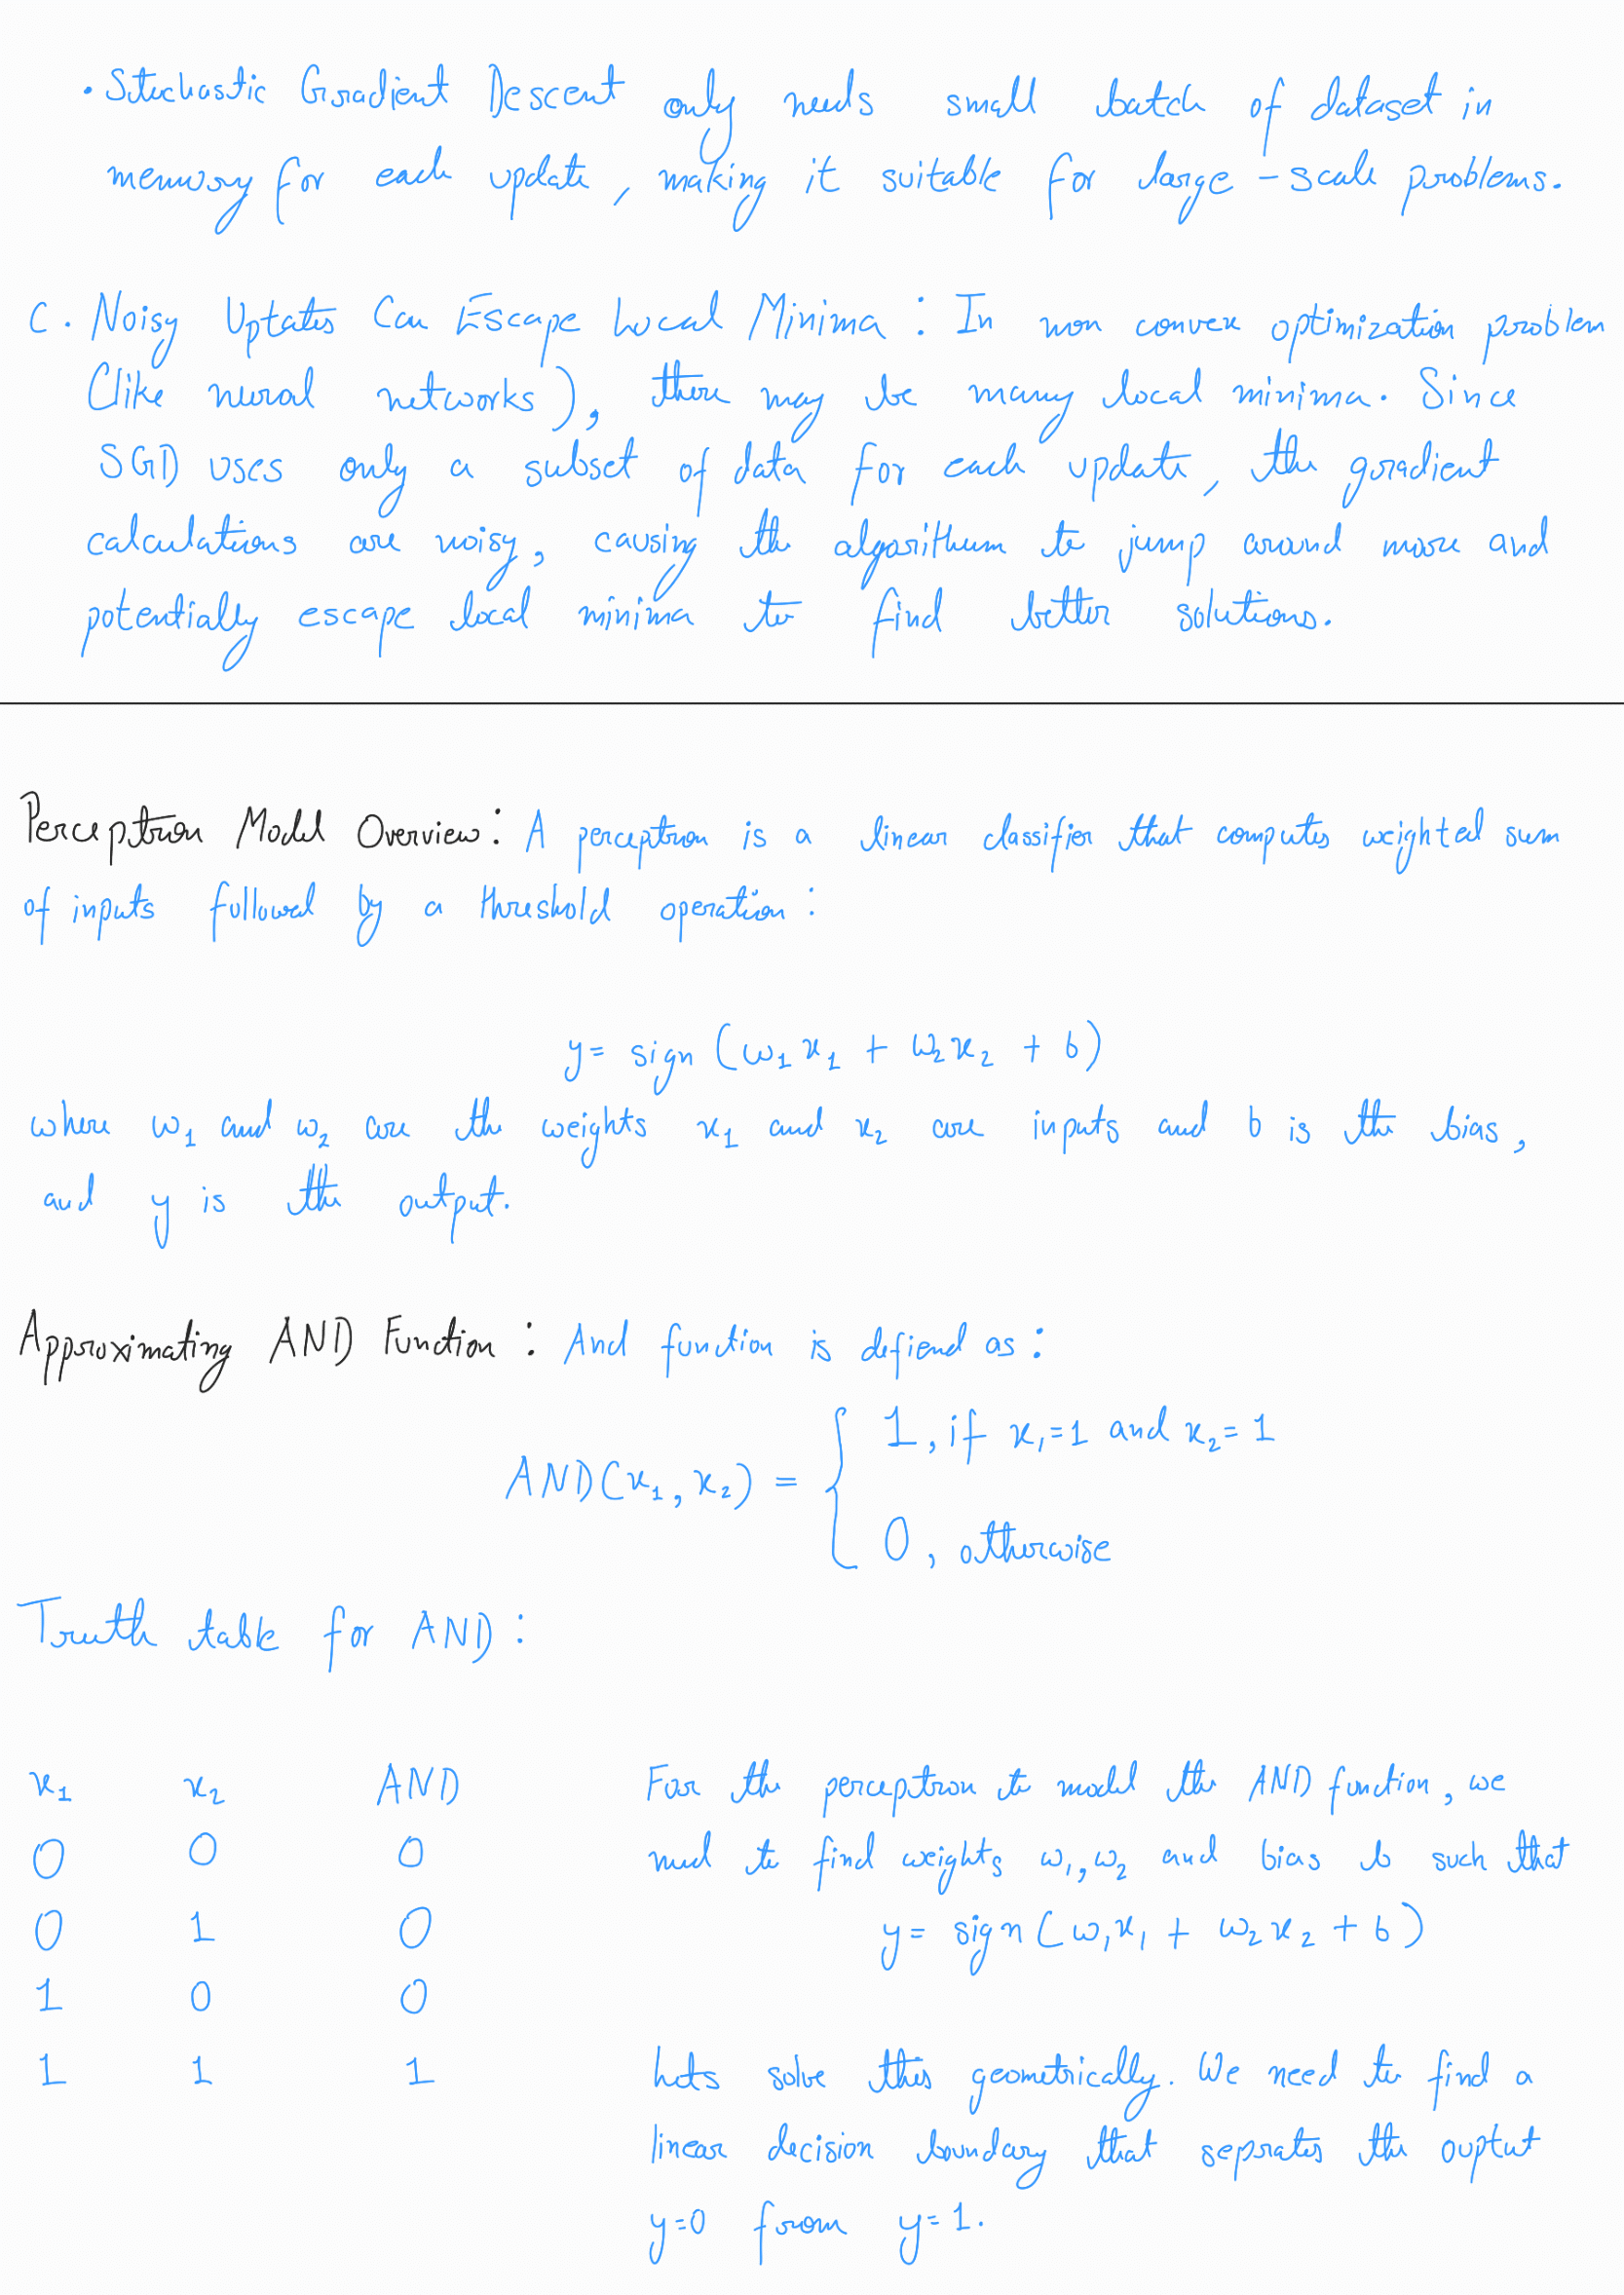 • Stochastic Gradient Descent only needs small batch of dataset in
memory for each update, making it suitable for large-scale problems.
C. Noisy Uptates Can Escape Local Minima : In non convex optimization problem
(like neural networks), there may be many local minima. Since
SGD uses only a subset of data for each update, the gradient
calculations are noisy, causing the algorithum to jump around more and
potentially escape local minima to find better solutions.
Perceptron Model Overview: A perceptron is a linear classifier that computes weighted sum
of inputs followed by a threshold operation :
y = sign (w₁x₁ + w₂x₂ + b)
where w₁ and w₂ are the weights x₁ and x₂ are inputs and b is the bias,
and y is the output.
Approximating AND Function : And function is defiend as :
AND(x₁, x₂) = { 1, if x₁=1 and x₂=1
0, otherwise
Truth table for AND :
x₁ x₂ AND
0 0 0
0 1 0
1 0 0
1 1 1
For the perceptron to model the AND function, we
need to find weights w₁, w₂ and bias b such that
y = sign (w₁x₁ + w₂x₂ + b)
Lets solve this geometrically. We need to find a
linear decision boundary that seprates the ouptut
y=0 from y=1.